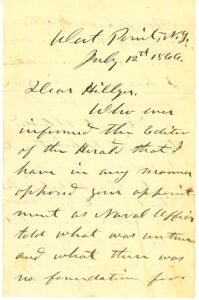 West Point, N.Y.
July 12th 1866.
Dear Hillyer,
Who ever
informed the Editor
of the Herald that I
have in any manner
opposed your appoint
ment as Naval Officer
told what was untrue
and what there was
no foundation for.